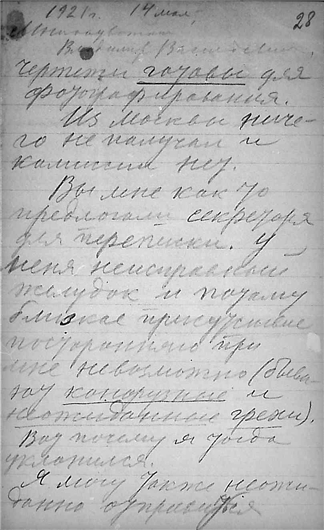 1921 г. 14 мая
28
Многоуважаемый
Владимир Васильевич,
чертежи готовы для
фотографирования.
Из Москвы ниче-
го не получал и
комиссии нет.
Вы мне как то
предлогали секретаря
для переписки. У
меня неисправный
желудок и потому
близкое присутствие
постороннего при
мне невозможно (быва-
ют конфузные и
неожиданные грехи).
Вот почему я тогда
уклонился.
Я могу также неожи-
данно отправиться